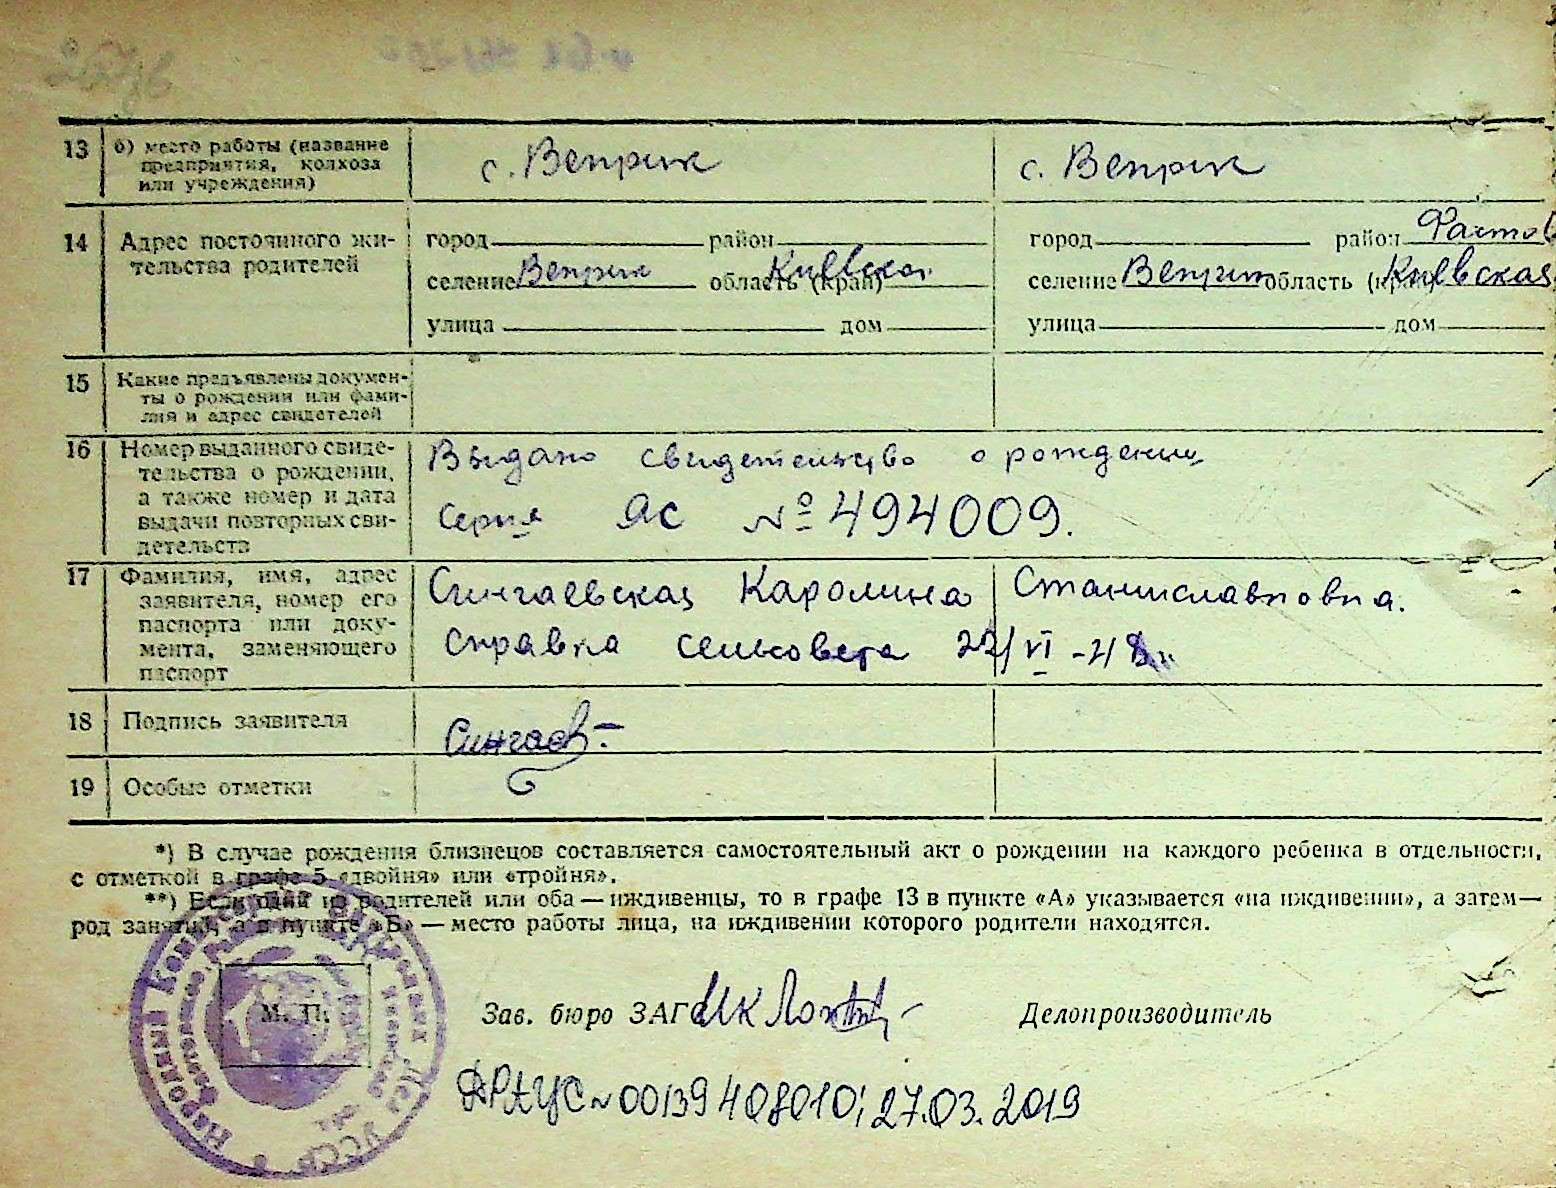 13 б) место работы (название предприятия, колхоза или учреждения) с. Веприк с. Веприк
14 Адрес постоянного жительства родителей
город район город район Фастов
селение Веприк область (край) Киевская селение Веприк область (край) Киевская
улица дом улица дом
15 Какие предъявлены документы о рождении или фамилия и адрес свидетелей
16 Номер выданного свидетельства о рождении, а также номер и дата выдачи повторных свидетельств
Выдано свидетельство о рождении
Серия ЯС № 494009.
17 Фамилия, имя, адрес заявителя, номер его паспорта или документа, заменяющего паспорт
Сингаевская Каролина Станиславовна.
справка сельсовета 22/VI-48
18 Подпись заявителя Сингаев
19 Особые отметки
*) В случае рождения близнецов составляется самостоятельный акт о рождении на каждого ребенка в отдельности,
с отметкой в графе 5 «двойня» или «тройня».
**) Если один из родителей или оба — иждивенцы, то в графе 13 в пункте «А» указывается «на иждивении», а затем —
род занятий, а в пункте «Б» — место работы лица, на иждивении которого родители находятся.
М. П.
Зав. бюро ЗАГС Делопроизводитель
ДРАЦС № 00139408010; 27.03.2019
Народный Комиссариат Внутренних Дел УССР